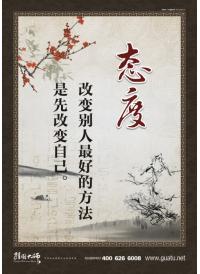 态度
改变别人最好的方法
是先改变自己。
挂图大师
400 626 6008
www.guatu.net